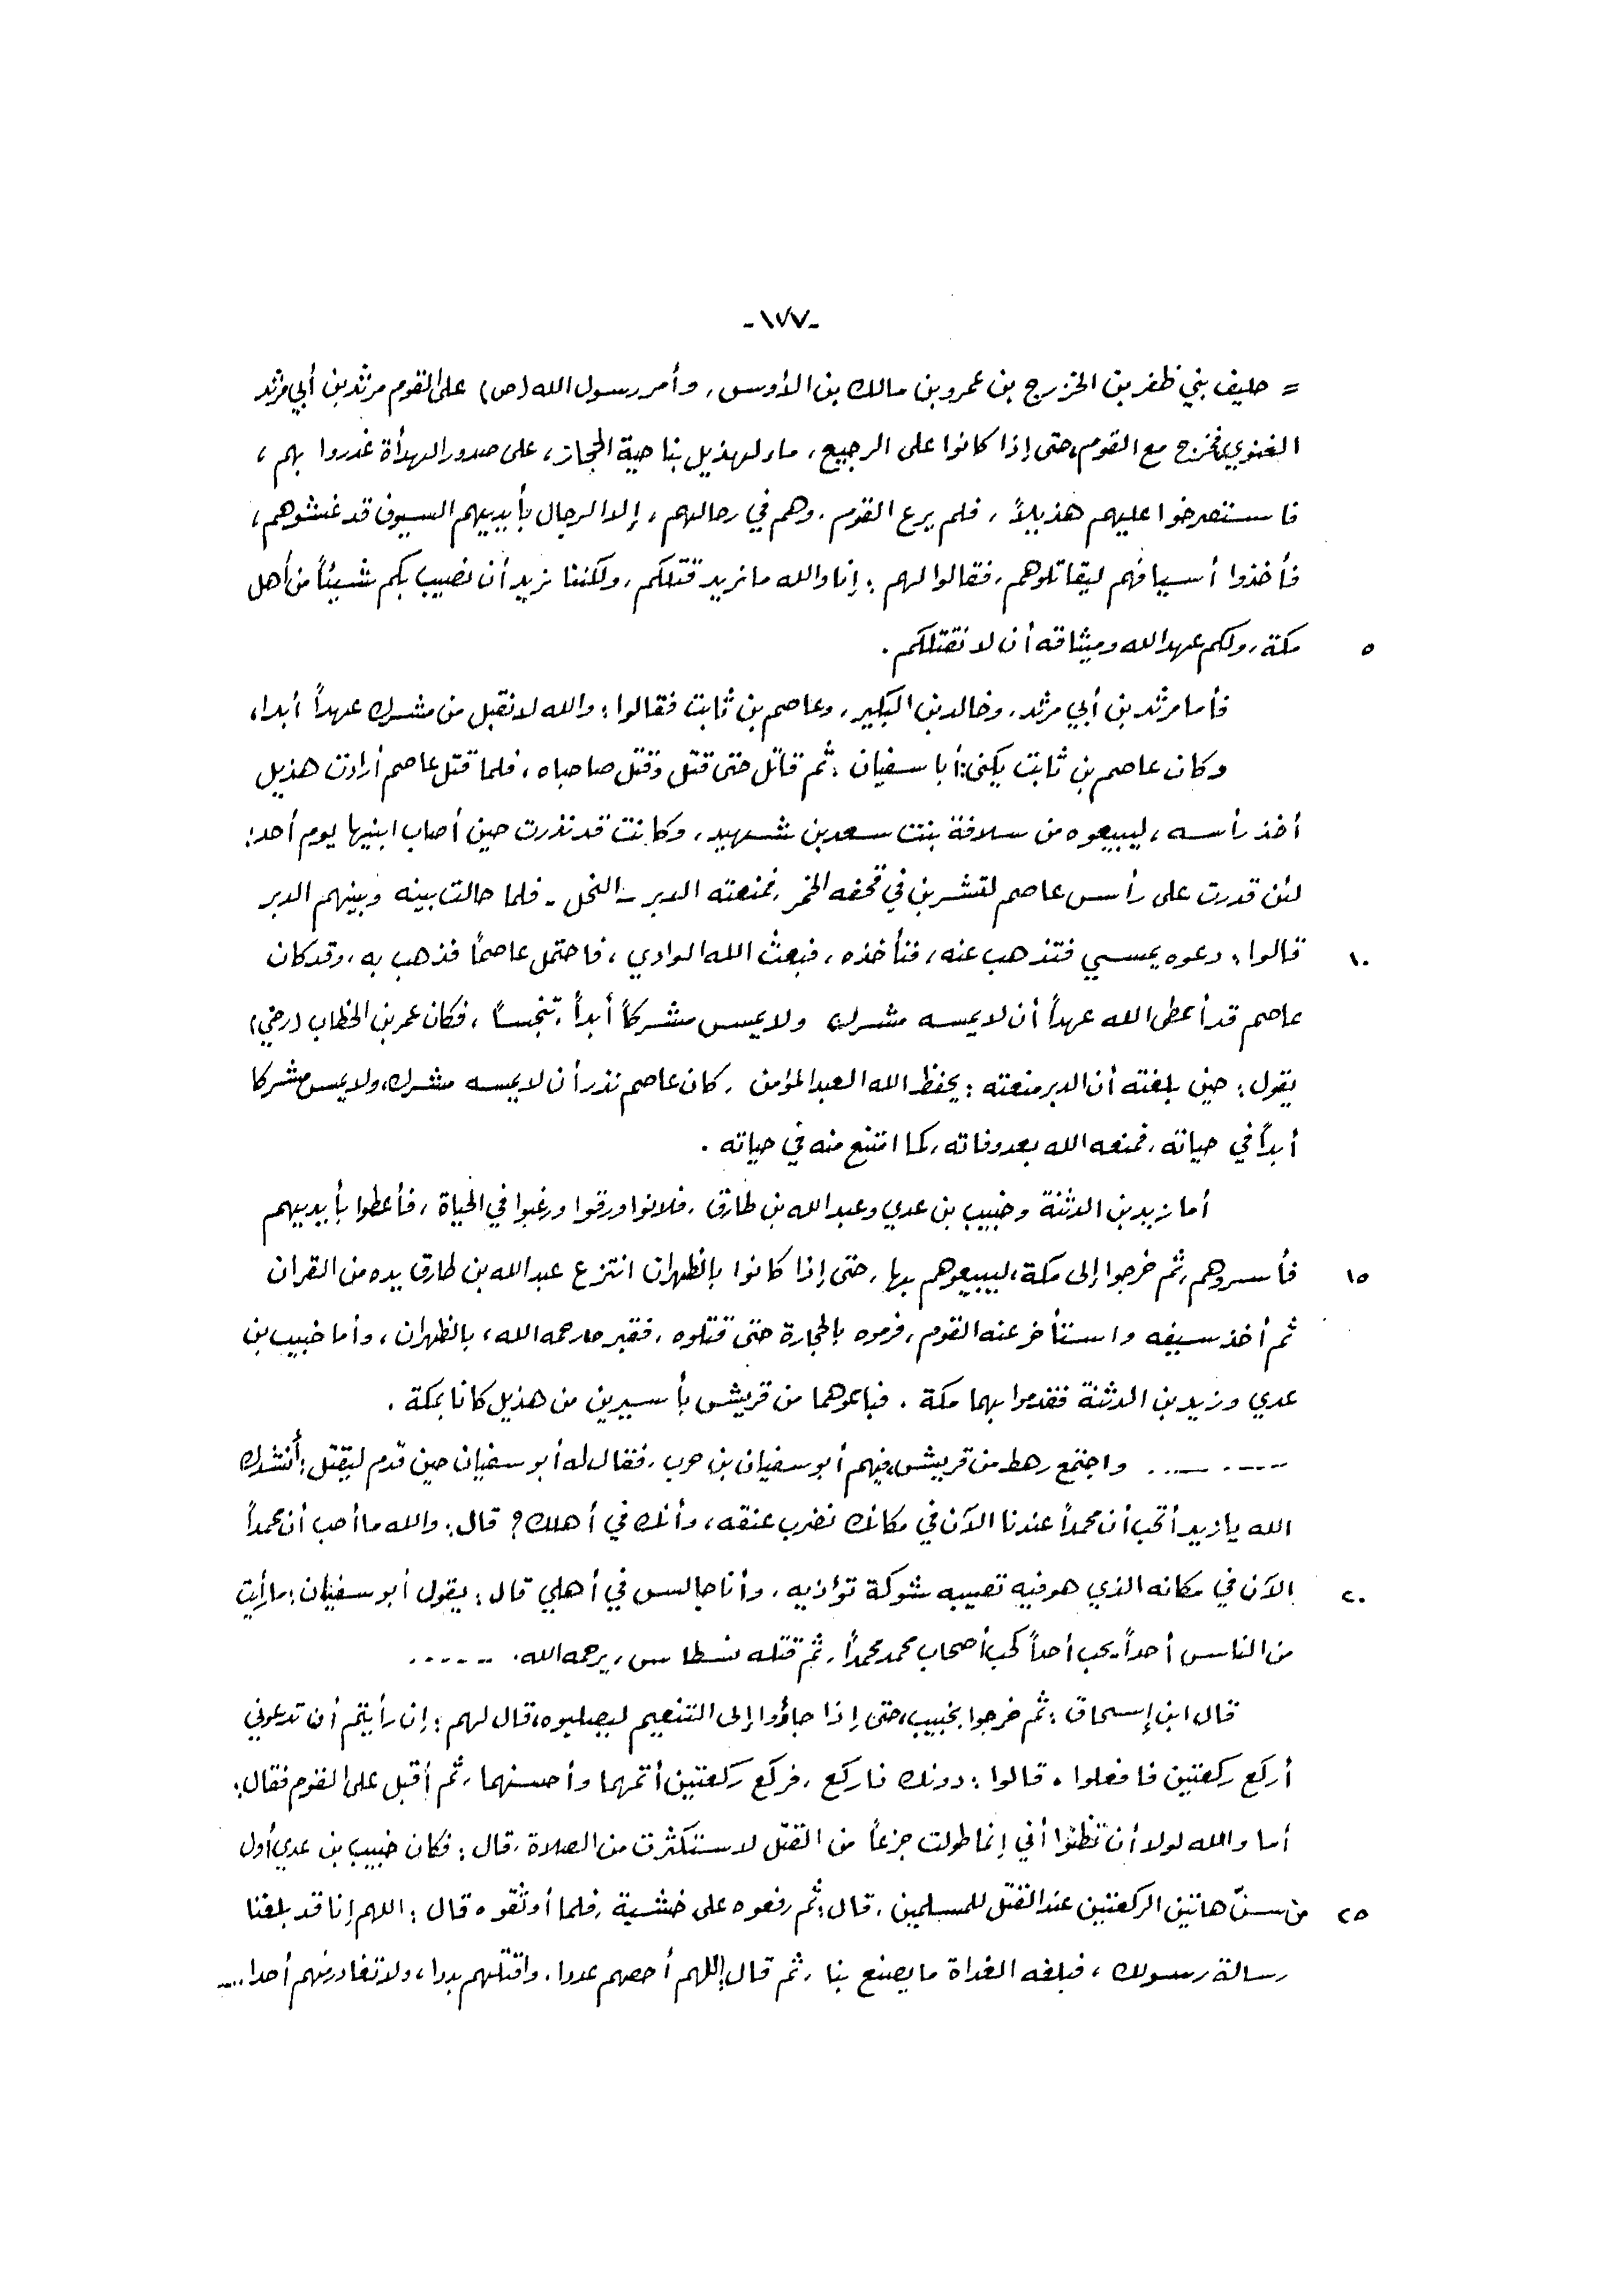 -١٧٧-
= حليف بني ظفر بن الخزرج بن عمرو بن مالك بن الأوس، وأمر رسول الله (ص) على القوم مرثد بن أبي مرثد
الغنوي، فخرج مع القوم، حتى إذا كانوا على الرجيع، ماء لهذيل بناحية الحجاز، على صدور الهدأة غدروا بهم،
فاستصرخوا عليهم هذيلاً، فلم يرع القوم، وهم في رحالهم، إلا الرجال بأيديهم السيوف قد غشوهم،
فأخذوا أسيافهم ليقاتلوهم، فقالوا لهم: إنا والله ما نريد قتلكم، ولكننا نريد أن نصيب بكم شيئاً من أهل
٥ مكة، ولكم عهد الله وميثاقه أن لا نقتلكم.
فأما مرثد بن أبي مرثد، وخالد بن البكير، وعاصم بن ثابت فقالوا: والله لا نقبل من مشرك عهداً أبدا،
وكان عاصم بن ثابت يكنى: أبا سفيان، ثم قاتل حتى قتل وقتل صاحباه، فلما قتل عاصم أرادت هذيل
أخذ رأسه، ليبيعوه من سلافة بنت سعد بن شهيد، وكانت قد نذرت حين أصاب ابنيها يوم أحد:
لئن قدرت على رأس عاصم لتشربن في قحفه الخمر، فمنعته الدبر - النحل - فلما حالت بينه وبينهم الدبر
١٠ قالوا: دعوه يمسي فتذهب عنه، فنأخذه، فبعث الله الوادي، فاحتمل عاصماً فذهب به، وقد كان
عاصم قد أعطى الله عهداً أن لا يمسه مشرك ولا يمس مشركاً أبداً، تنجساً، فكان عمر بن الخطاب (رضي)
يقول: حين بلغته أن الدبر منعته: يحفظ الله العبد المؤمن، كان عاصم نذر أن لا يمسه مشرك، ولا يمس مشركا
أبداً في حياته، فمنعه الله بعد وفاته، كما امتنع منه في حياته.
أما زيد بن الدثنة وخبيب بن عدي وعبد الله بن طارق، فلانوا ورقوا ورغبوا في الحياة، فأعطوا بأيديهم
١٥ فأسروهم، ثم خرجوا إلى مكة، ليبيعوهم بها، حتى إذا كانوا بالظهران انتزع عبد الله بن طارق يده من القران
ثم أخذ سيفه واستأخر عنه القوم، فرموه بالحجارة حتى قتلوه، فقبره، رحمه الله، بالظهران، وأما خبيب بن
عدي وزيد بن الدثنة فقدموا بهما مكة. فباعوهما من قريش بأسيرين من هذيل كانا بمكة.
.......... واجتمع رهط من قريش، فيهم أبو سفيان بن حرب، فقال له أبو سفيان حين قدم ليقتل: أنشدك
الله يا زيد أتحب أن محمداً عندنا الآن في مكانك نضرب عنقه، وأنك في أهلك؟ قال: والله ما أحب أن محمداً
٢٠ الآن في مكانه الذي هو فيه تصيبه شوكة تؤذيه، وأنا جالس في أهلي قال: يقول أبو سفيان: ما رأيت
من الناس أحداً يحب أحداً كحب أصحاب محمد محمداً، ثم قتله نسطاس، يرحمه الله. ......
قال ابن إسحاق: ثم خرجوا بخبيب، حتى إذا جاؤوا إلى التنعيم ليصلبوه، قال لهم: إن رأيتم أن تدعوني
أركع ركعتين فافعلوا. قالوا: دونك فاركع، فركع ركعتين أتمهما وأحسنهما، ثم أقبل على القوم فقال:
أما والله لولا أن تظنوا أني إنما طولت جزعاً من القتل لاستكثرت من الصلاة، قال: فكان خبيب بن عدي أول
٢٥ من سنّ هاتين الركعتين عند القتل للمسلمين، قال: ثم رفعوه على خشبة، فلما أوثقوه قال: اللهم إنا قد بلغنا
رسالة رسولك، فبلغه الغداة ما يصنع بنا، ثم قال: اللهم أحصهم عددا، واقتلهم بددا، ولا تغادر منهم أحدا....